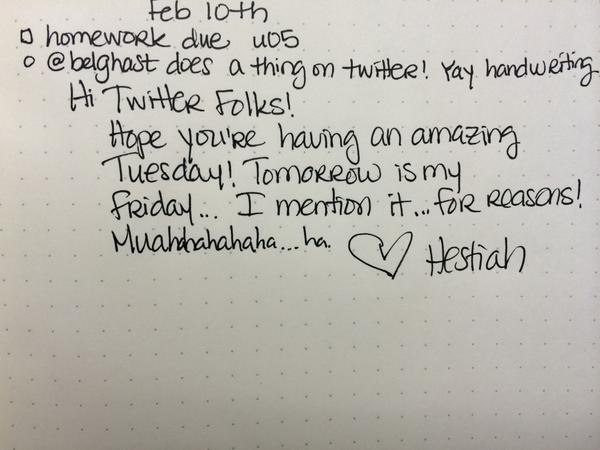 Feb 10th
homework due u05
@belghast does a thing on twitter! Yay handwriting
Hi Twitter Folks!
Hope you're having an amazing
Tuesday! Tomorrow is my
Friday... I mention it...for reasons!
Muahhahahaha...ha.
Hestiah